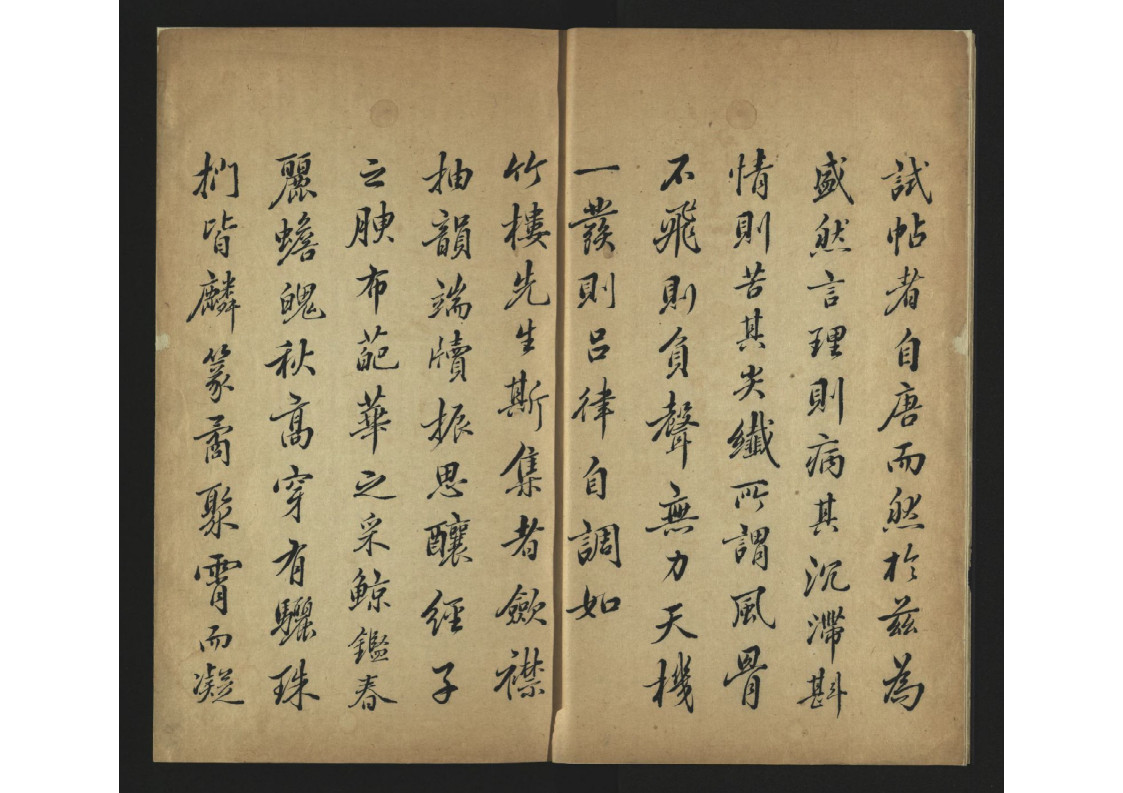 試帖者自唐而然於茲為
盛然言理則病其沉滯斟
情則苦其尖纖所謂風骨
不飛則負聲無力天機
一發則呂律自調如
竹樓先生斯集者斂襟
抽韻端牘振思釀經子
之腴布葩華之采鯨鑑春
麗蟾魄秋高穿有驪珠
捫皆麟篆矞聚霄而凝